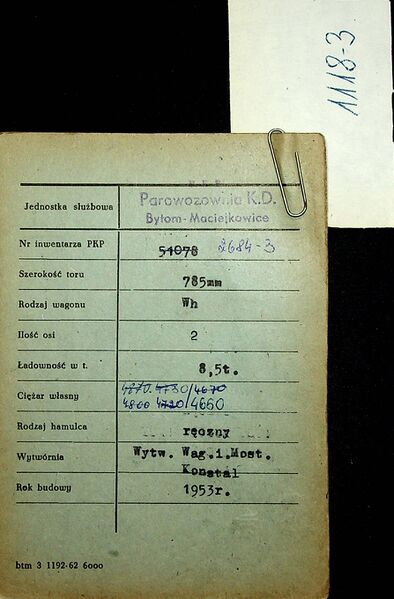 1118-3
Jednostka służbowa
Parowozownia K.D.
Bytom-Maciejkowice
Nr inwentarza PKP 51078 2684-3
Szerokość toru 785mm
Rodzaj wagonu Wh
Ilość osi 2
Ładowność w t. 8,5t.
Ciężar własny 4870. 4730/4670
4800 4720/4660
Rodzaj hamulca ręczny
Wytwórnia Wytw. Wag.i.Most.
Konstal
Rok budowy 1953r.
btm 3 1192-62 6000